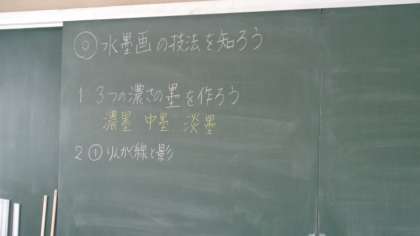 ◎水墨画の技法を知ろう
1 3つの濃さの墨を作ろう
濃墨 中墨 淡墨
2 ①りんかく線と影